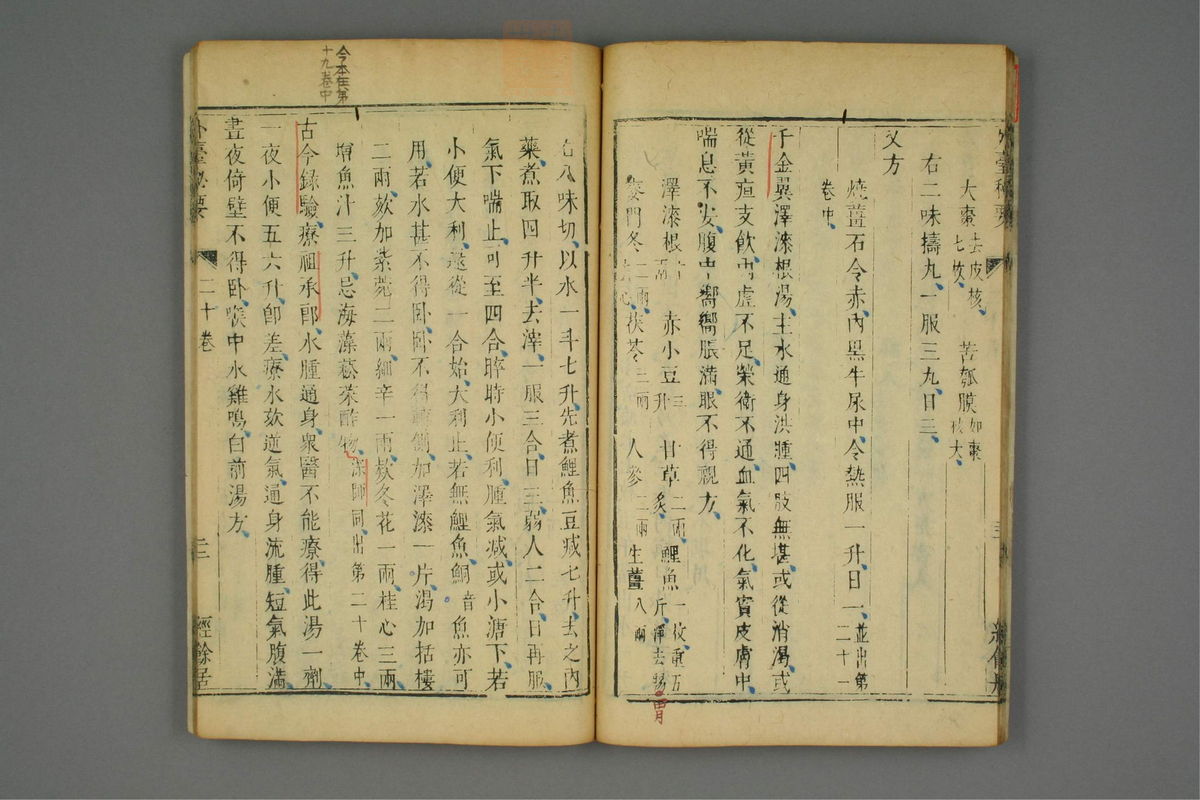 大棗去皮核七枚、苦瓠膜如棗核大、
右二味擣丸、一服三丸、日三、
又方
燒薑石令赤內黑牛尿中、令熱服一升、日一、並出第二十一
卷中、
千金翼澤漆根湯、主水通身洪腫四肢無堪、或從消渴、或
從黃疸支飲、內虛不足、榮衛不通、血氣不化、氣實皮膚中、
喘息不安、腹中嚮嚮脹滿、眼不得視方、
澤漆根 赤小豆三升 甘草二兩炙 鯉魚一枚重五斤淨去腸胃
麥門冬二兩去心 茯苓三兩 人參二兩 生薑八兩
右八味切、以水一斗七升、先煮鯉魚豆減七升、去之內
藥煮取四升半、去滓、一服三合日三、弱人二合、日再服、
氣下喘止、可至四合、晬時小便利、腫氣減、或小溏下、若
小便大利、還從一合始、大利止、若無鯉魚、鮦音魚亦可
用、若水甚不得臥、臥不得轉側、加澤漆一片、渴加括樓
二兩、欬加紫菀二兩、細辛一兩、款冬花一兩、桂心三兩
增魚汁三升、忌海藻菘菜酢物、深師同、出第二十卷中、
古今錄驗療祖承郎、水腫通身、衆醫不能療、得此湯一劑、
一夜小便五六升、卽差、療水欬逆氣、通身流腫、短氣腹滿
晝夜倚壁不得臥、喉中水雞鳴、白前湯方、
外臺秘要 二十卷 三 經餘居
今本在第
十九卷中